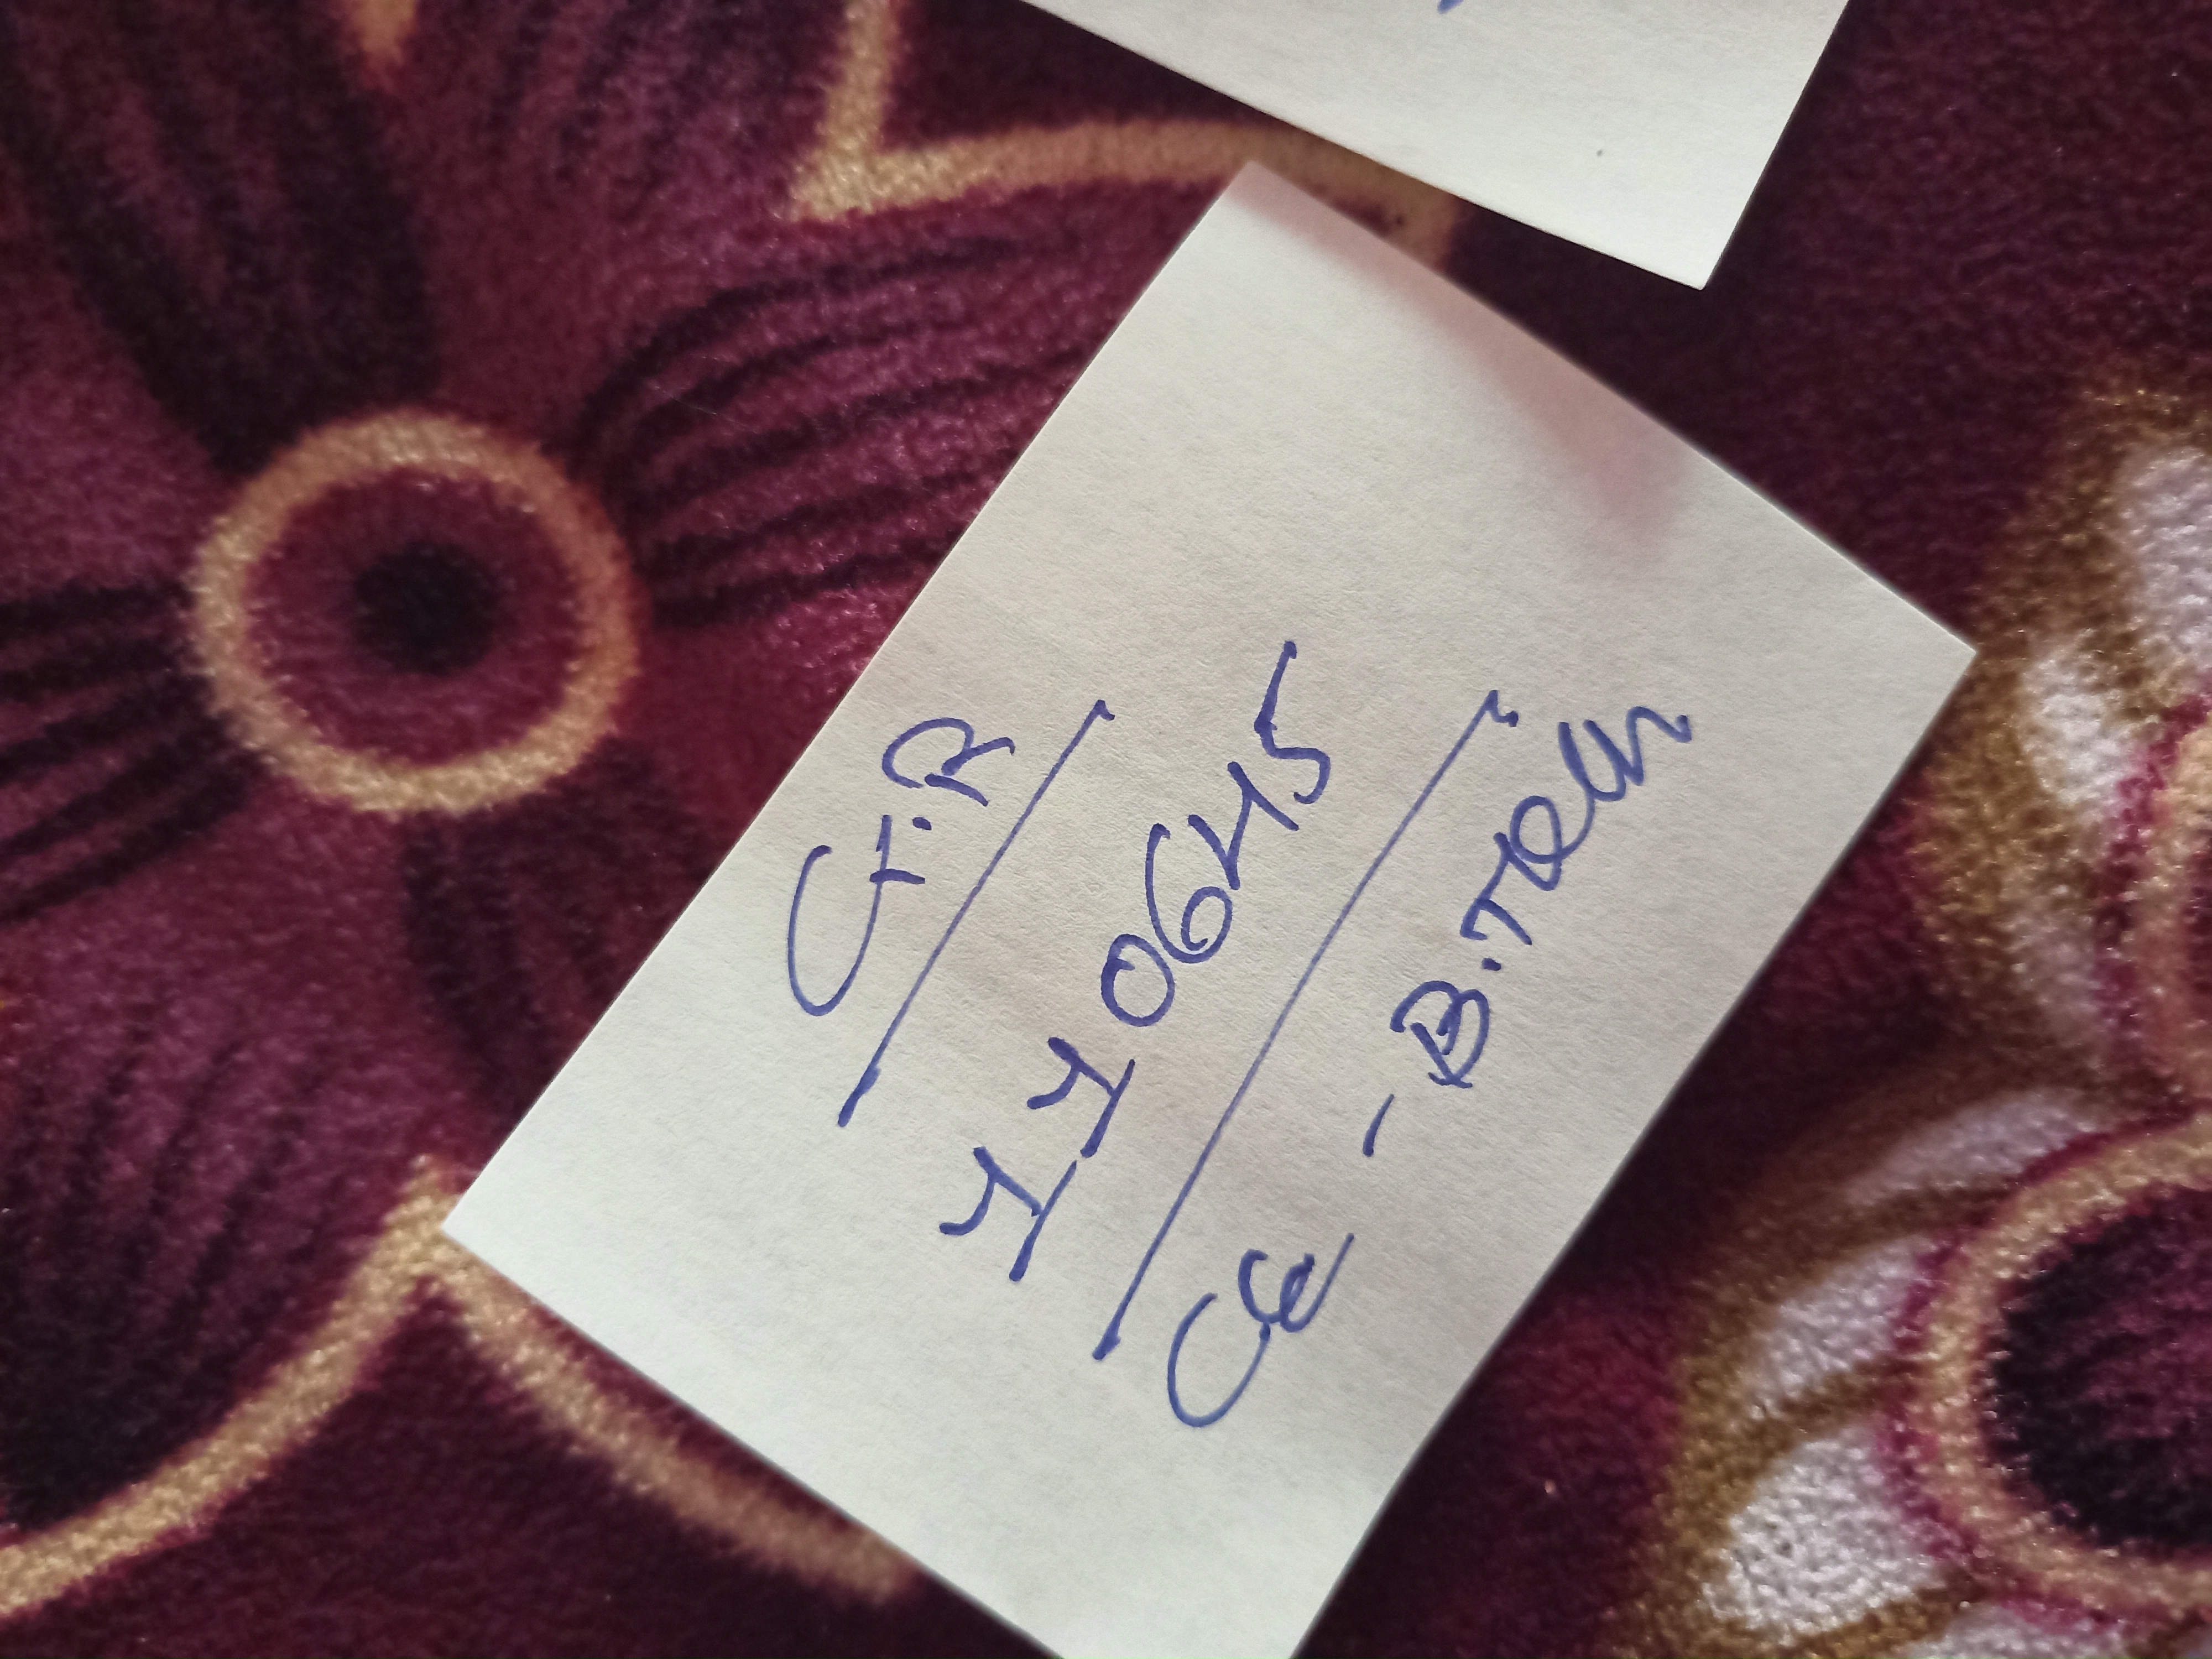 Ct.R
110645
CE - B.Tech